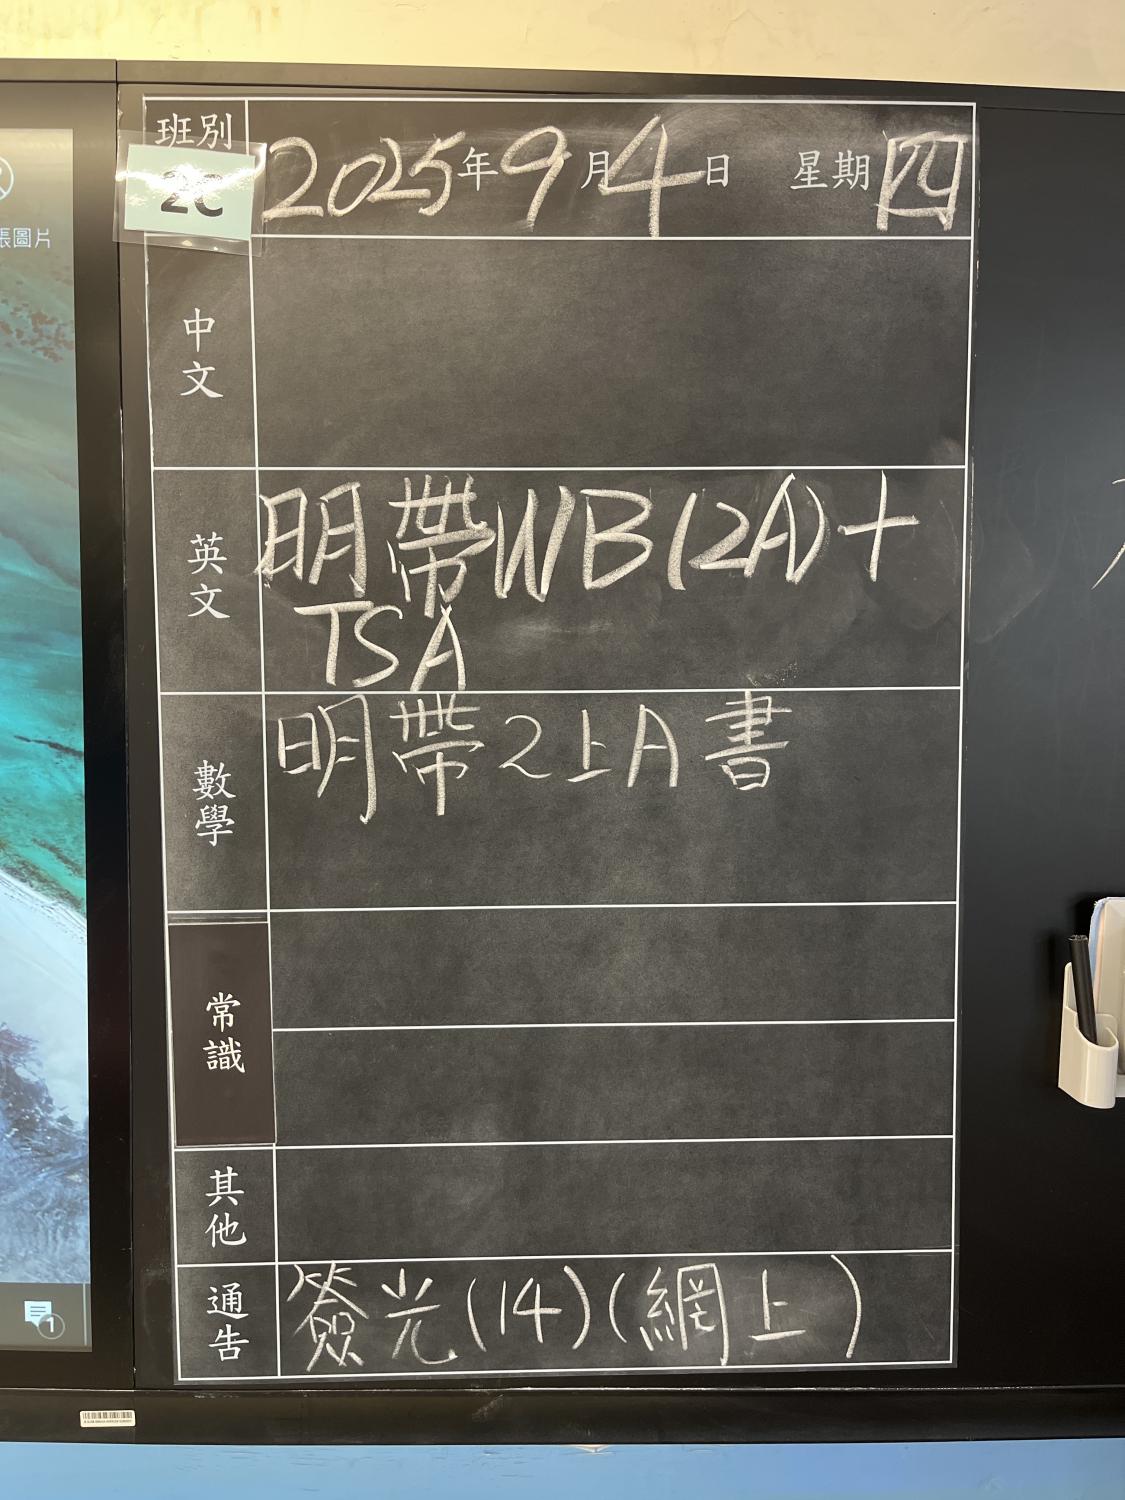 班別
2C
2025年9月4日 星期四
張圖片
中文
英文
明帶WB(2A)+
TSA
數學
明帶2上A書
常識
其他
通告
簽光(14)(網上)
1